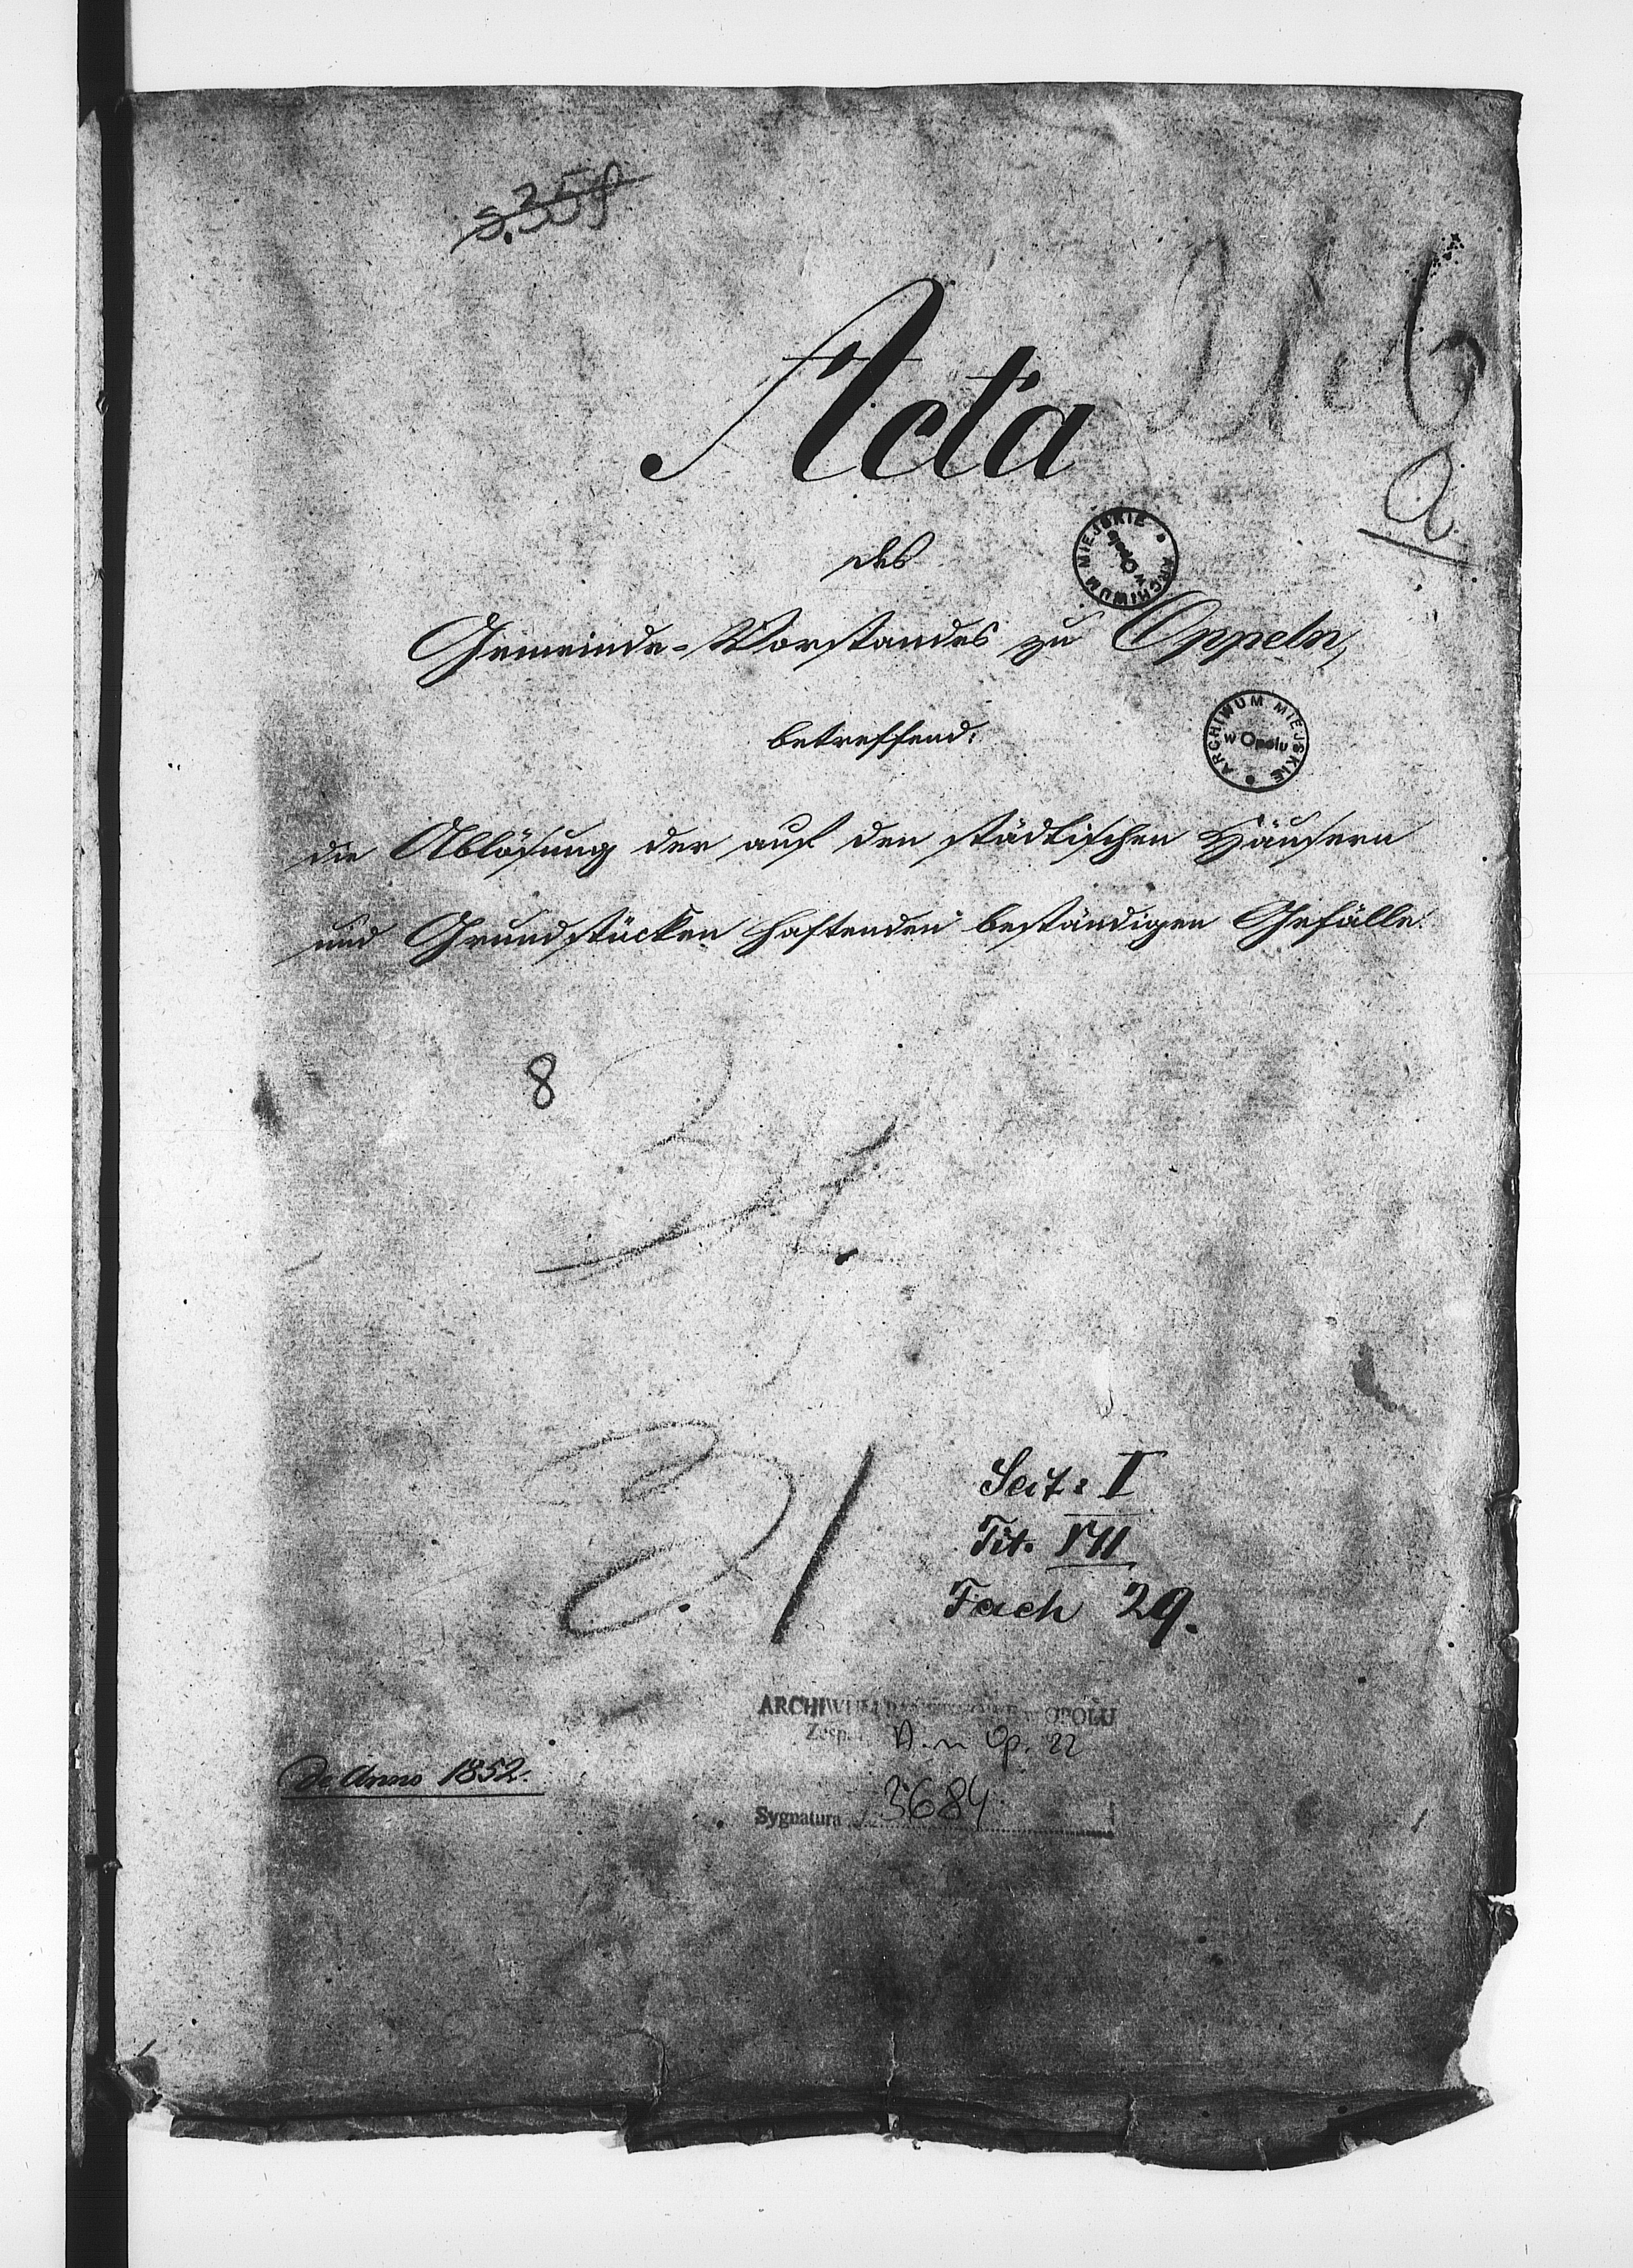 S. 359
Acta
6
a.
des
ARCHIWUM MIEJSKIE w Opolu
Gemeinde-Vorstandes zu Oppeln,
betreffend:
ARCHIWUM MIEJSKIE w Opolu
die Ablösung der auf den städtischen Häusern
und Grundstücken haftenden beständigen Gefälle.
8
Seit: I
Tit. VII
Fach 29.
ARCHIWUM OPOLU
Zesp. Op. 22
de Anno 1852.
Sygnatura 3684